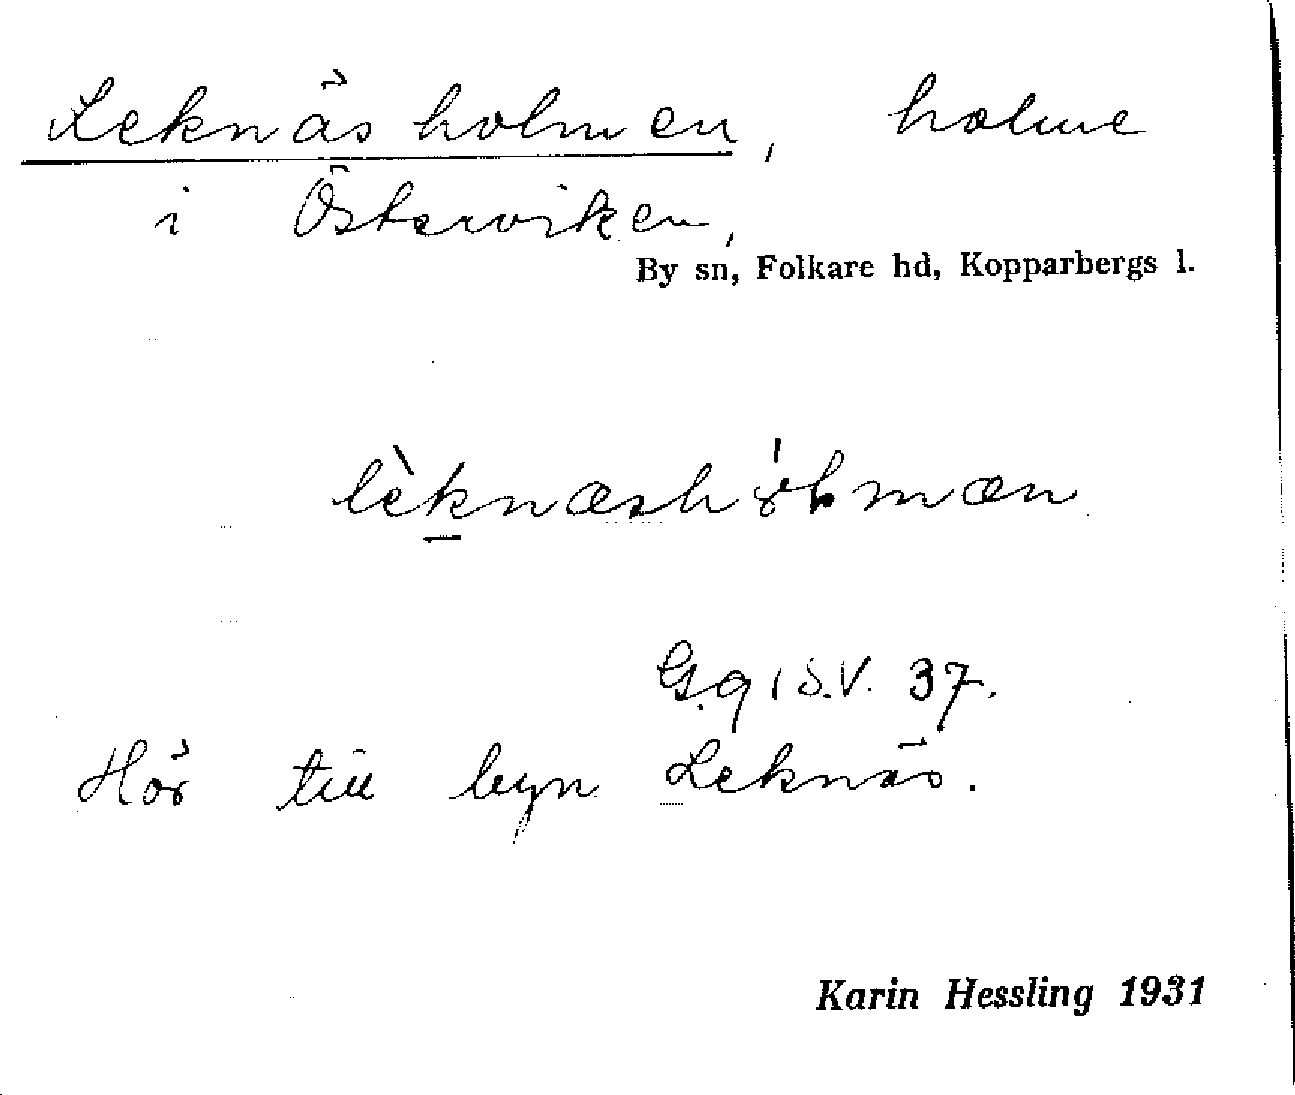 Leknäsholmen, holme
i Österviken,
By sn, Folkare hd, Kopparbergs l.
G.q i S.V. 37.
Hör till byn Leknäs.
Karin Hessling 1931